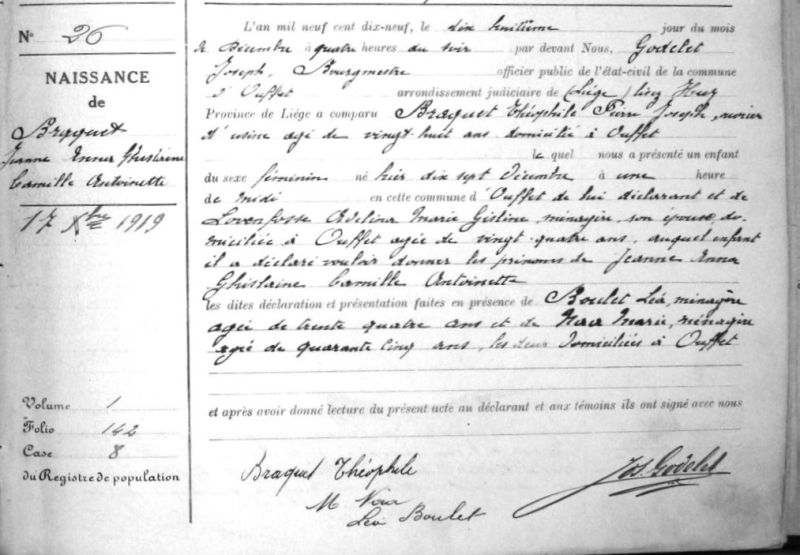 N° 26
NAISSANCE
de
Braquet
Jeanne Anna Ghislaine
Camille Antoinette
17 Xbre 1919
Volume 1
Folio 142
Case 8
du Registre de population
L'an mil neuf cent dix-neuf, le dix huitième jour du mois
de Décembre à quatre heures du soir par devant Nous, Godelet
Joseph, Bourgmestre officier public de l'état-civil de la commune
d'Ouffet arrondissement judiciaire de (Liége) lisez Huy
Province de Liége a comparu Braquet Théophile Pierre Joseph, ouvrier
d'usine agé de vingt huit ans domicilié à Ouffet
le quel nous a présenté un enfant
du sexe féminin né hier dix sept Décembre à une heure
de midi en cette commune d'Ouffet de lui déclarant et de
Adelina Marie Gisline ménagère, son épouse do-
miciliée à Ouffet agée de vingt-quatre ans, auquel enfant
il a déclaré vouloir donner les prénoms de Jeanne Anna
Ghislaine Camille Antoinette
les dites déclaration et présentation faites en présence de Boulet Léa, ménagère
agée de trente quatre ans et de Marie, ménagère
agée de quarante cinq ans, les deux domiciliées à Ouffet
et après avoir donné lecture du présent acte au déclarant et aux témoins ils ont signé avec nous
Braquet Théophile
Jos. Godelet
M
Léa Boulet